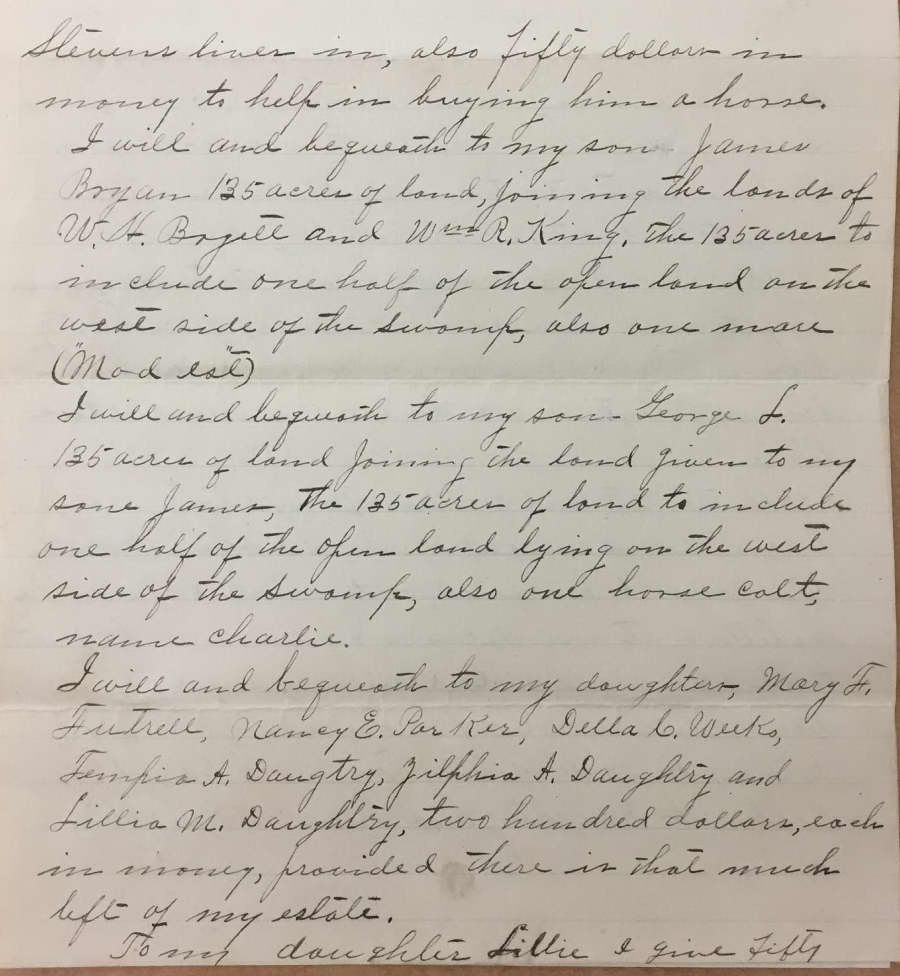 Stevens lives in, also fifty dollars in
money to help in buying him a horse.
I will and bequeath to my son James
Bryan 135 acres of land, joining the lands of
W. H. and Wm R. King, the 135 acres to
include one half of the open land on the
west side of the swamp, also one mare
("Modest")
I will and bequeath to my son - George L.
135 acres of land joining the land given to my
sone James, the 135 acres of land to include
one half of the open land lying on the west
side of the swamp, also one horse colt,
name Charlie.
I will and bequeath to my daughters, Mary F.
Futrell, Nancy E. Parker, Della C. Weeks,
Tempia A. Daugtry, Zilphia A. Daughtry and
Lillia M. Daughtry, two hundred dollars, each
in money, provided there is that much
left of my estate.
To my daughter Lillie I give fifty